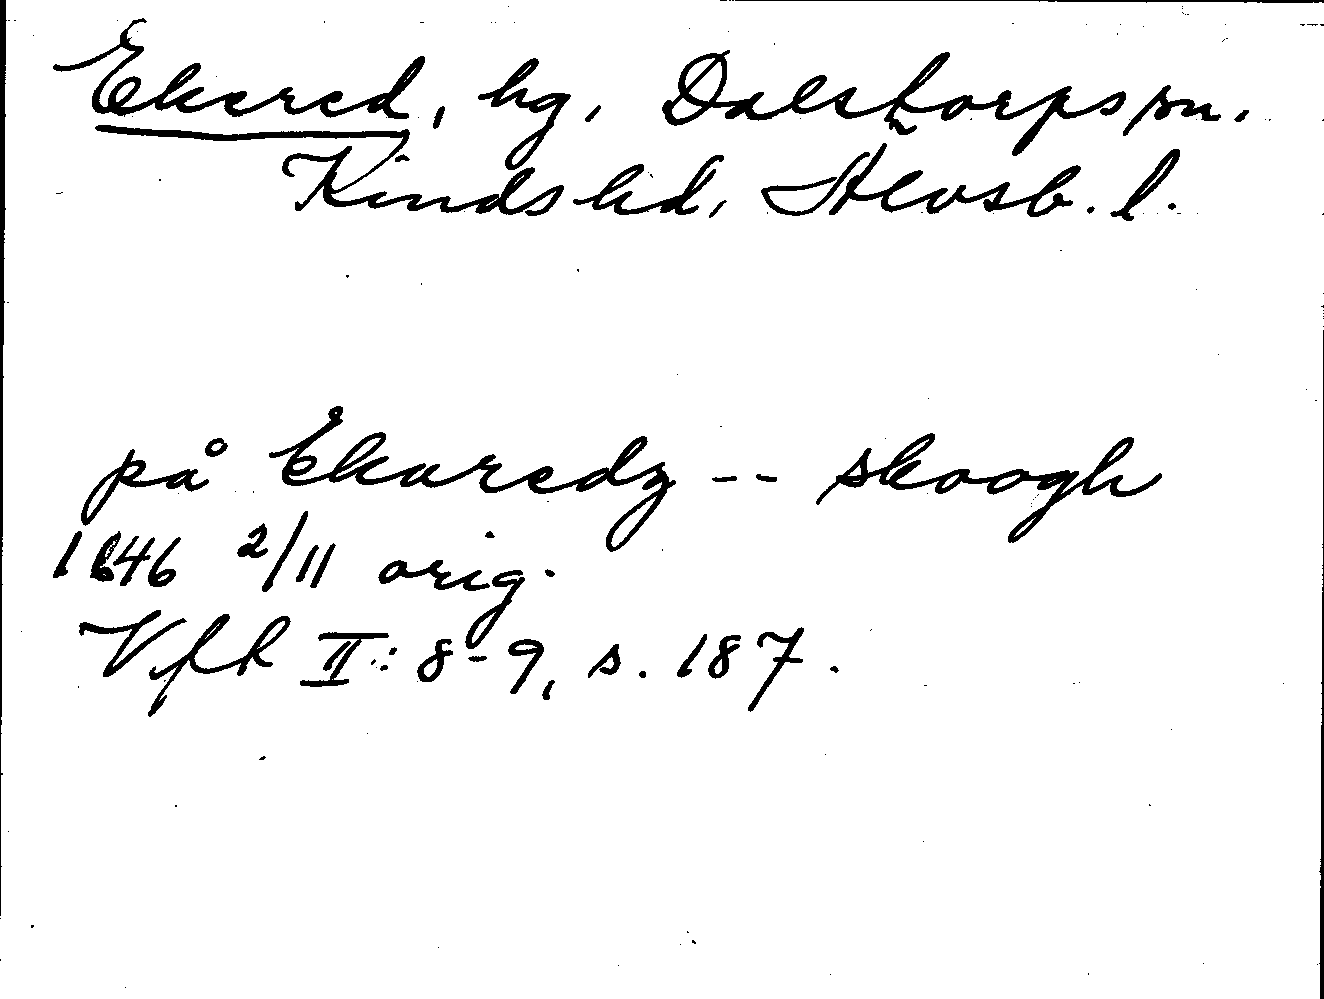 Ekered, hg, Dalstorps sn.
Kinds hd, Älvsb. l.
på Ekaredz -- skoogh
1646 2/11 orig.
Vfh II: 8-9, s. 187.